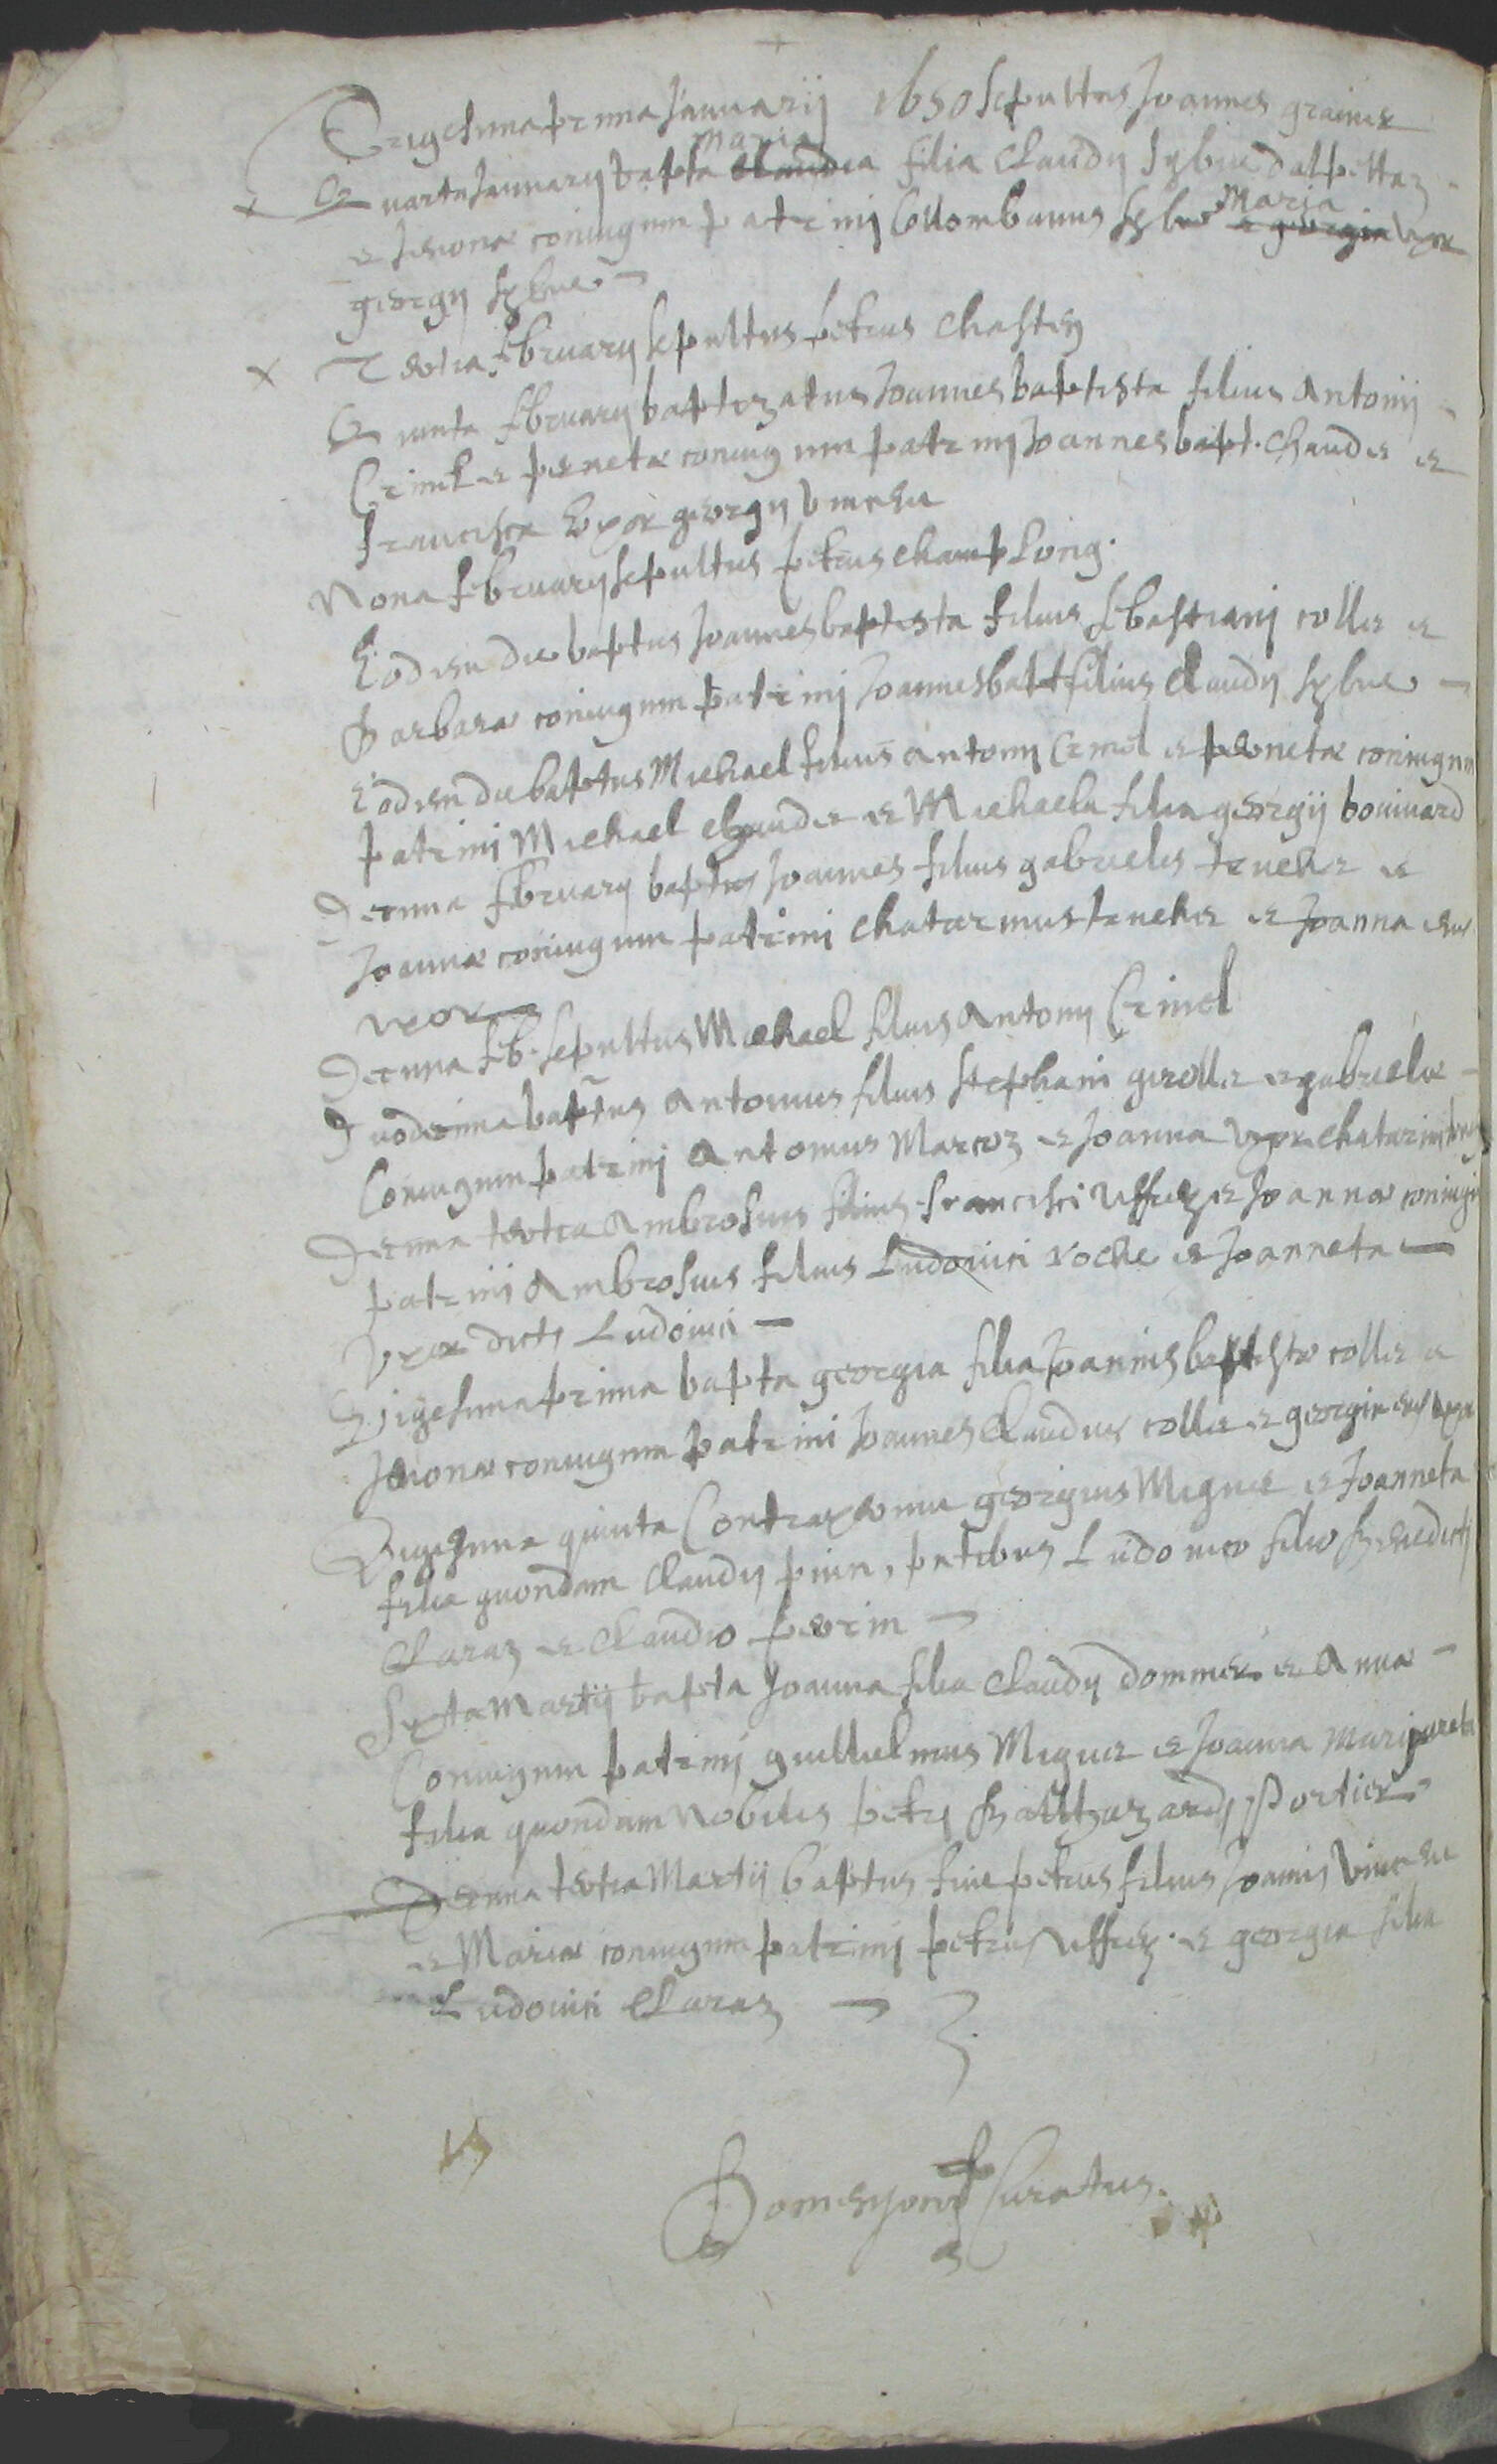 Trigesima prima Januarij 1650 sepultus Joannes grainer
Maria
Quarta Januarij bapta Claudia filia Claudij Sybue dalpettaz
Maria
et Jeronæ coniugum patrinj Collombanus Sybue et georgia uxor
georgij Sybue
Tertia februarij sepultus petrus Chasten
Quinta februarij baptizatus Joannes baptista filius Antonij
Crimel et pernetæ coniugum patrinj Joannes bapt. Chaude et
francisca Uxor georgij Vincen
Nona februarij sepultus petrus champlong.
Eodem die baptus Joannes baptista filius Sebastianj colle et
Barbaræ coniugum patrinj Joannes bapt filius Claudij Sybue
Eodem die baptus Michael filius Antonij Crimel et pernetæ coniugum
patrini Michael chaude et Michaela filia georgij bouiuard
Decima februarij baptus Joannes filius gabrielis truche et
Joannæ coniugum patrini chatarinus truche et Joanna eius
uxor
Decima feb. sepultus Michael filius Antonij Crimel
Duodecima baptus Antonius filius Stephani girolle et gabrielæ
Coniugum patrinj Antonius Marcoz et Joanna Uxor chatarini
Decima tertia Ambrosius filius francisci Uffrey et Joannæ coniugum
patrinj Ambrosius filius Ludouici roche et Joanneta
Uxor dicti Ludouici
Vigesima prima bapta georgia filia Joannis baptistæ colle et
Jeronæ coniugum patrini Joannes Claudius colle et georgia eius uxor
Vigesima quinta Contraxerunt georgius Magnie et Joanneta
filia quondam Claudij , Ludouico filio Benedicti
Claraz et Claudio perrin
Sexta Martij bapta Joanna filia Claudij dommer et Annæ
Coniugum patrinj guillielmus Magnie et Joanna Margareta
filia quondam Nobilis petri Balthazardj Portier
Decima tertia Martij baptus petrus filius Joannis Vincen
et Mariæ coniugum patrinj petrus Uffrey. et georgia filia
Ludouici Claraz
Curatus.